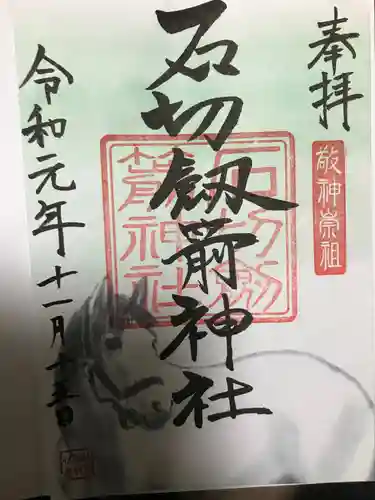 奉拝
敬神崇祖
石切劔箭神社
石切劔箭神社
令和元年十一月十五日